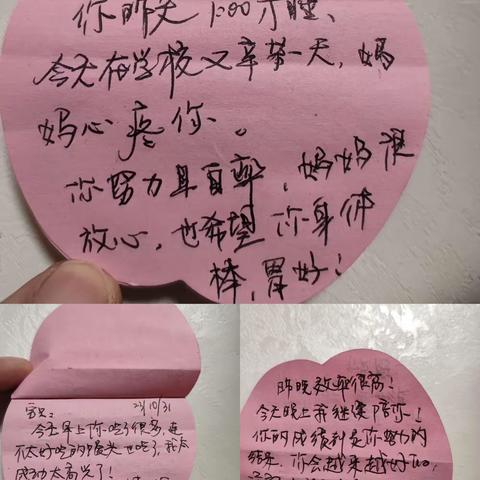 你昨天1:00才睡、
今天在学校又辛苦一天，妈
妈心疼你。
你努力且自律，妈妈很
放心，也希望你身体
棒，胃好！
23/10/31
今天早上你吃了很多，连
不太好吃的馒头也吃了，我太
成功太高兴了！
昨晚效率很高！
今天晚上我继续陪你！
你的成绩是你努力的
结果，你会越来越好